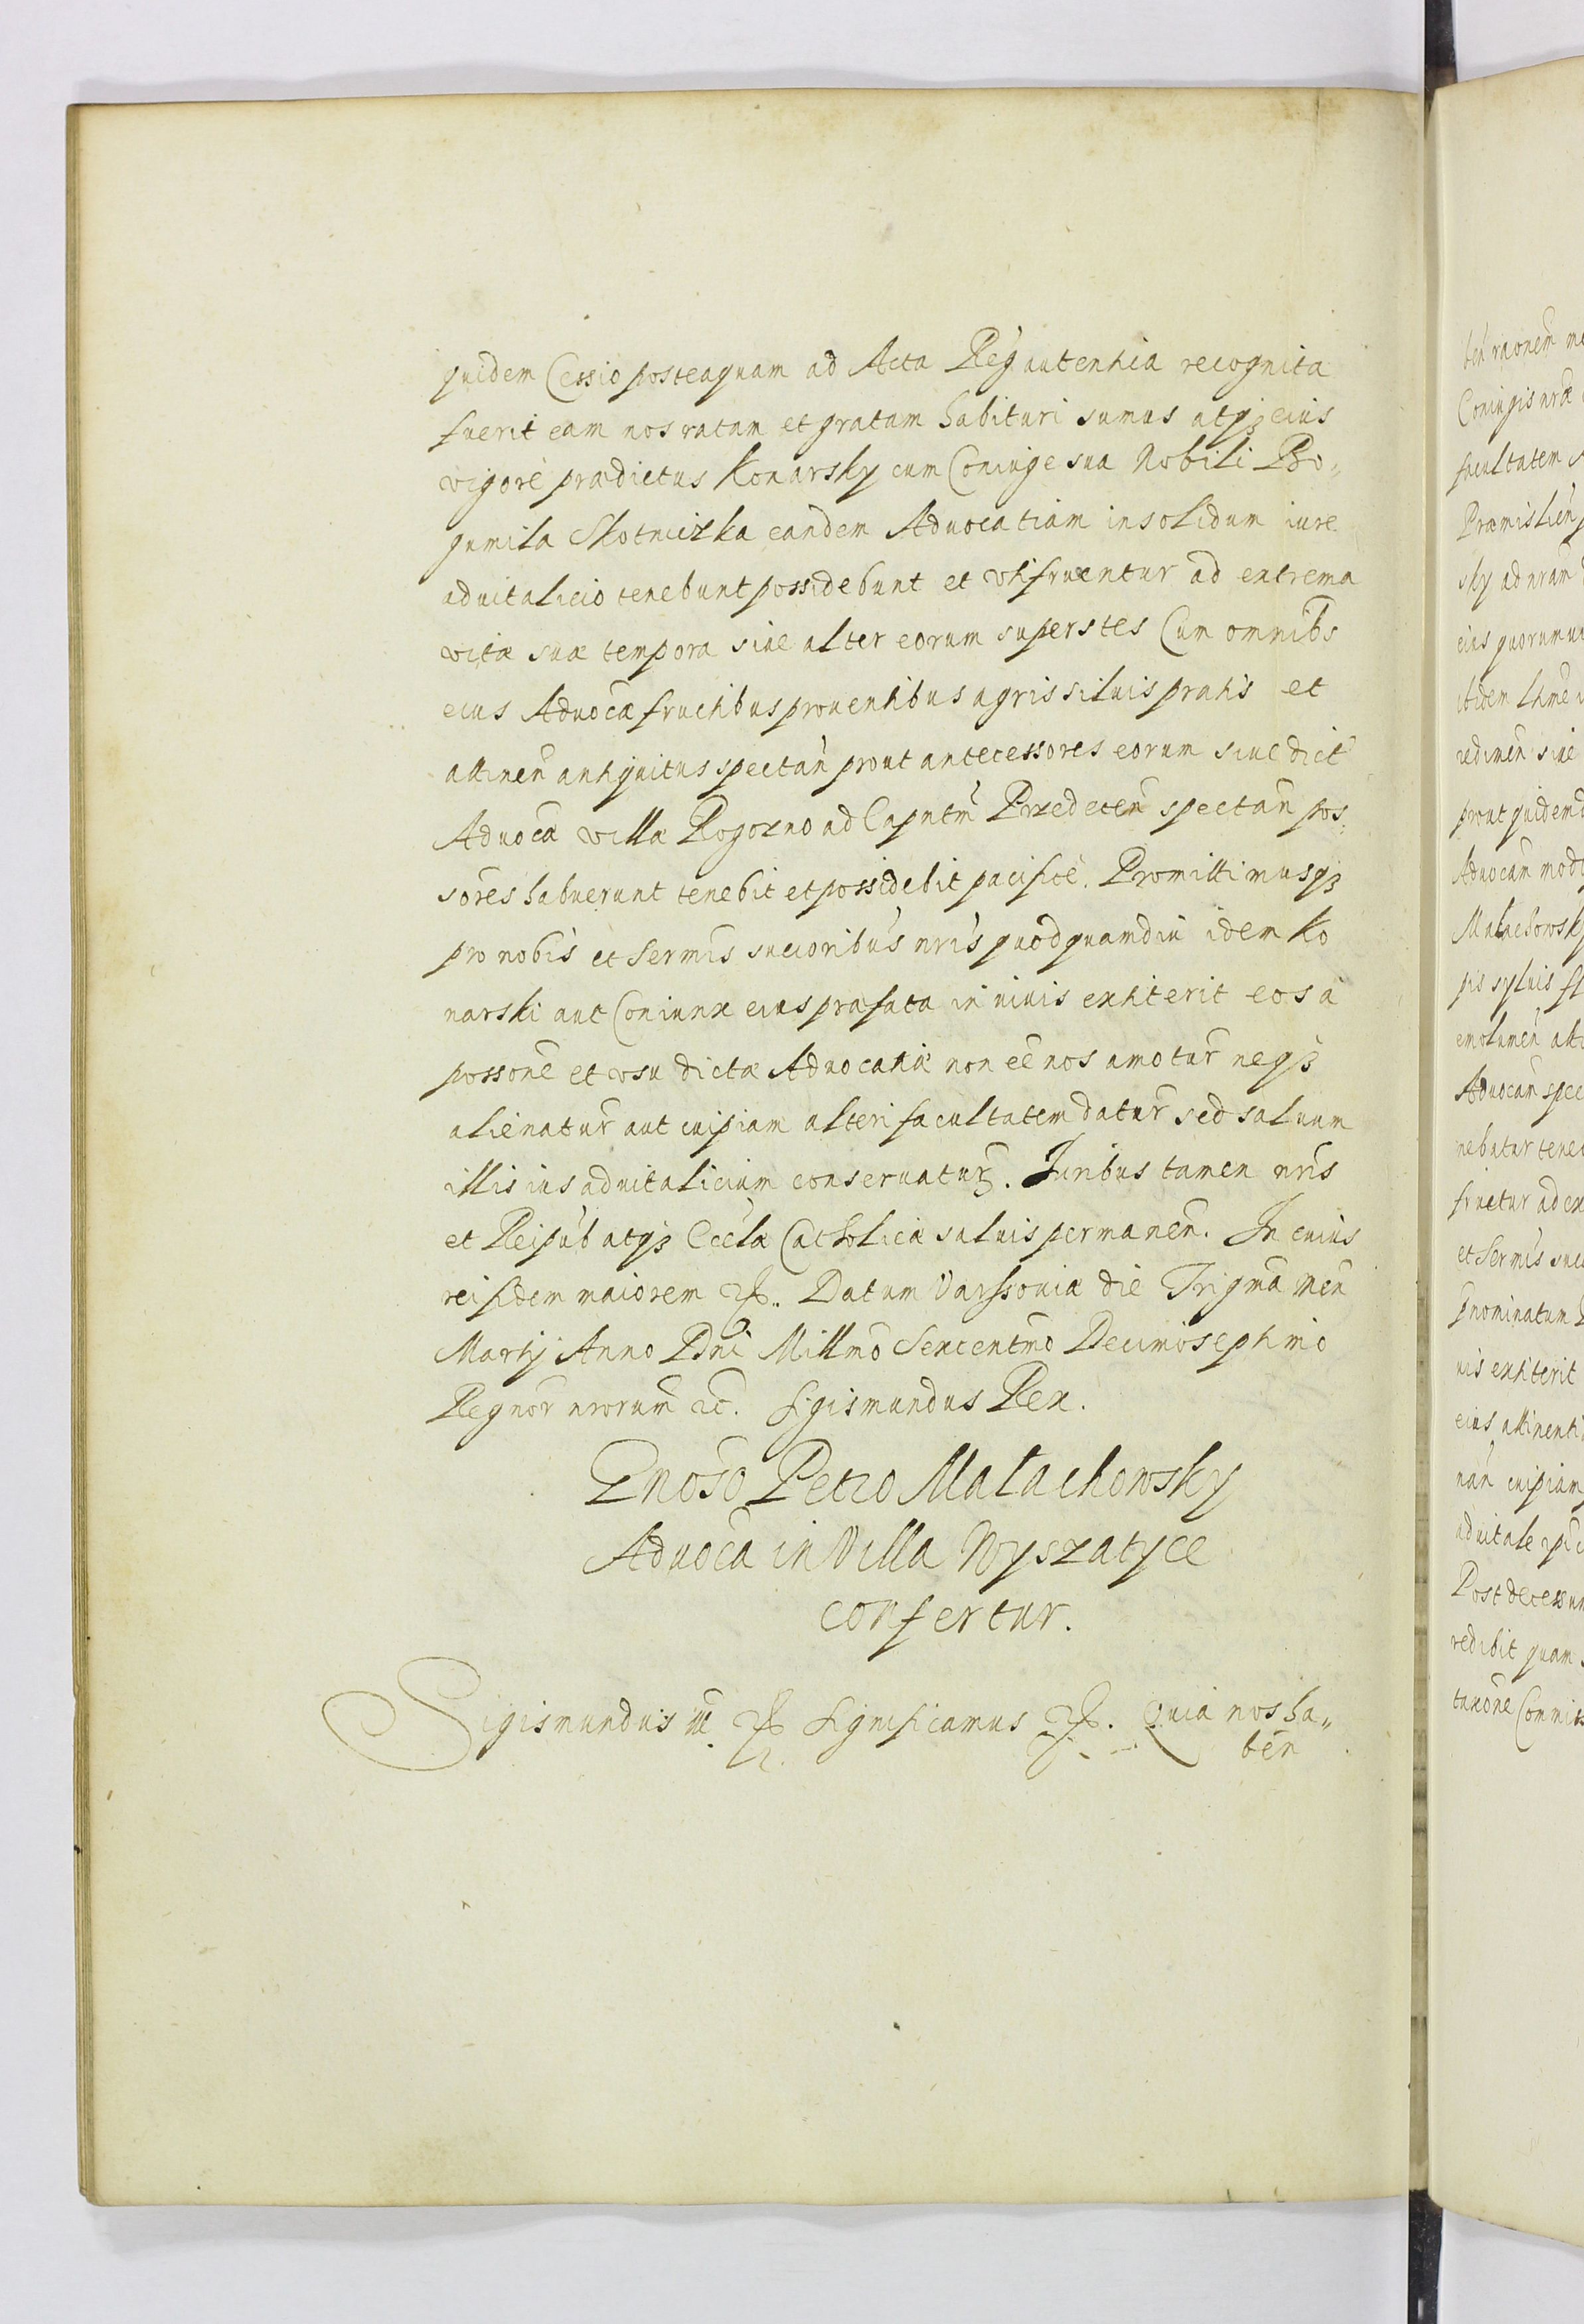 quidem Cessio posteaquam ad Acta Reg autentica recognita
fuerit eam nos ratam et gratam habituri sumus atqꝫ eius
vigore prædictus Konarsky cum Coniuge sua Nobili Bo„
gumila Skotniczka eandem Aduocatiam in solidum iure
aduitalicio tenebunt possidebunt et vtifruentur ad extrema
vitæ suæ tempora siue alter eorum superstes Cum omnibs
eius Aduocæ fructibus prouentibus agris siluis pratis et
attinen antiquitus spectan prout antecessores eorum siue dict
Aduocæ villæ Rogozno ad Capntm Przedecen spectan pos„
sores habuerunt tenebit et possidebit pacifice. Promittimusqꝫ
pro nobis et Sermis succoribus nris quod quamdiu idem Ko
narski aut Coniunx eius præfata in viuis extiterit eos a
possone et vsu dictæ Aduocatiæ non ee nos amotur neqꝫ
alienatur aut cuipiam alteri facultatem datur sed saluum
illis ius aduitalicium conseruatur. Juribus tamen nris
et Reipub atqꝫ Eccla Catholicæ saluis permanen. In cuius
rei fidem maiorem etc. Datum Varssouiæ die Trigma Men
Martij Anno Dni Millmo Sexcentmo Decimoseptimo
Regnor nrorum etc. Sigismundus Rex.
Gnoso Petro Malachowsky
Aduoca in Villa Wyszatyce
confertur.
Sigismundus III etc Significamus etc. Quia nos ha„
ben
ben raonem
Coniugis nræ
facultatem
Præmislien
sky ad nram
eius quorum
ibidem
redimen siue
prout quidem
Aduocam mod
Malachowsk
pis syluis
emolumen
Aduocam spec
nebatur
fructur ad ex
et Sermis succ
pnominatum
uis extiterit
eius attinenti
nan cuipiam
aduitale
Post
redibit quam
taxone Commis